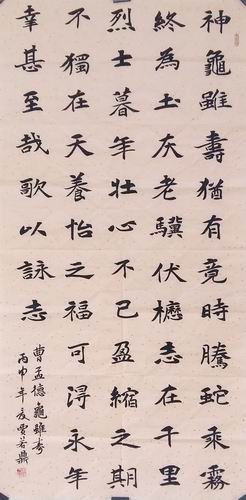 神龜雖壽猶有竟時騰蛇乘霧
終為土灰老驥伏櫪志在千里
烈士暮年壯心不已盈縮之期
不獨在天養怡之福可得永年
幸甚至哉歌以詠志
曹孟德龜雖壽
丙申年